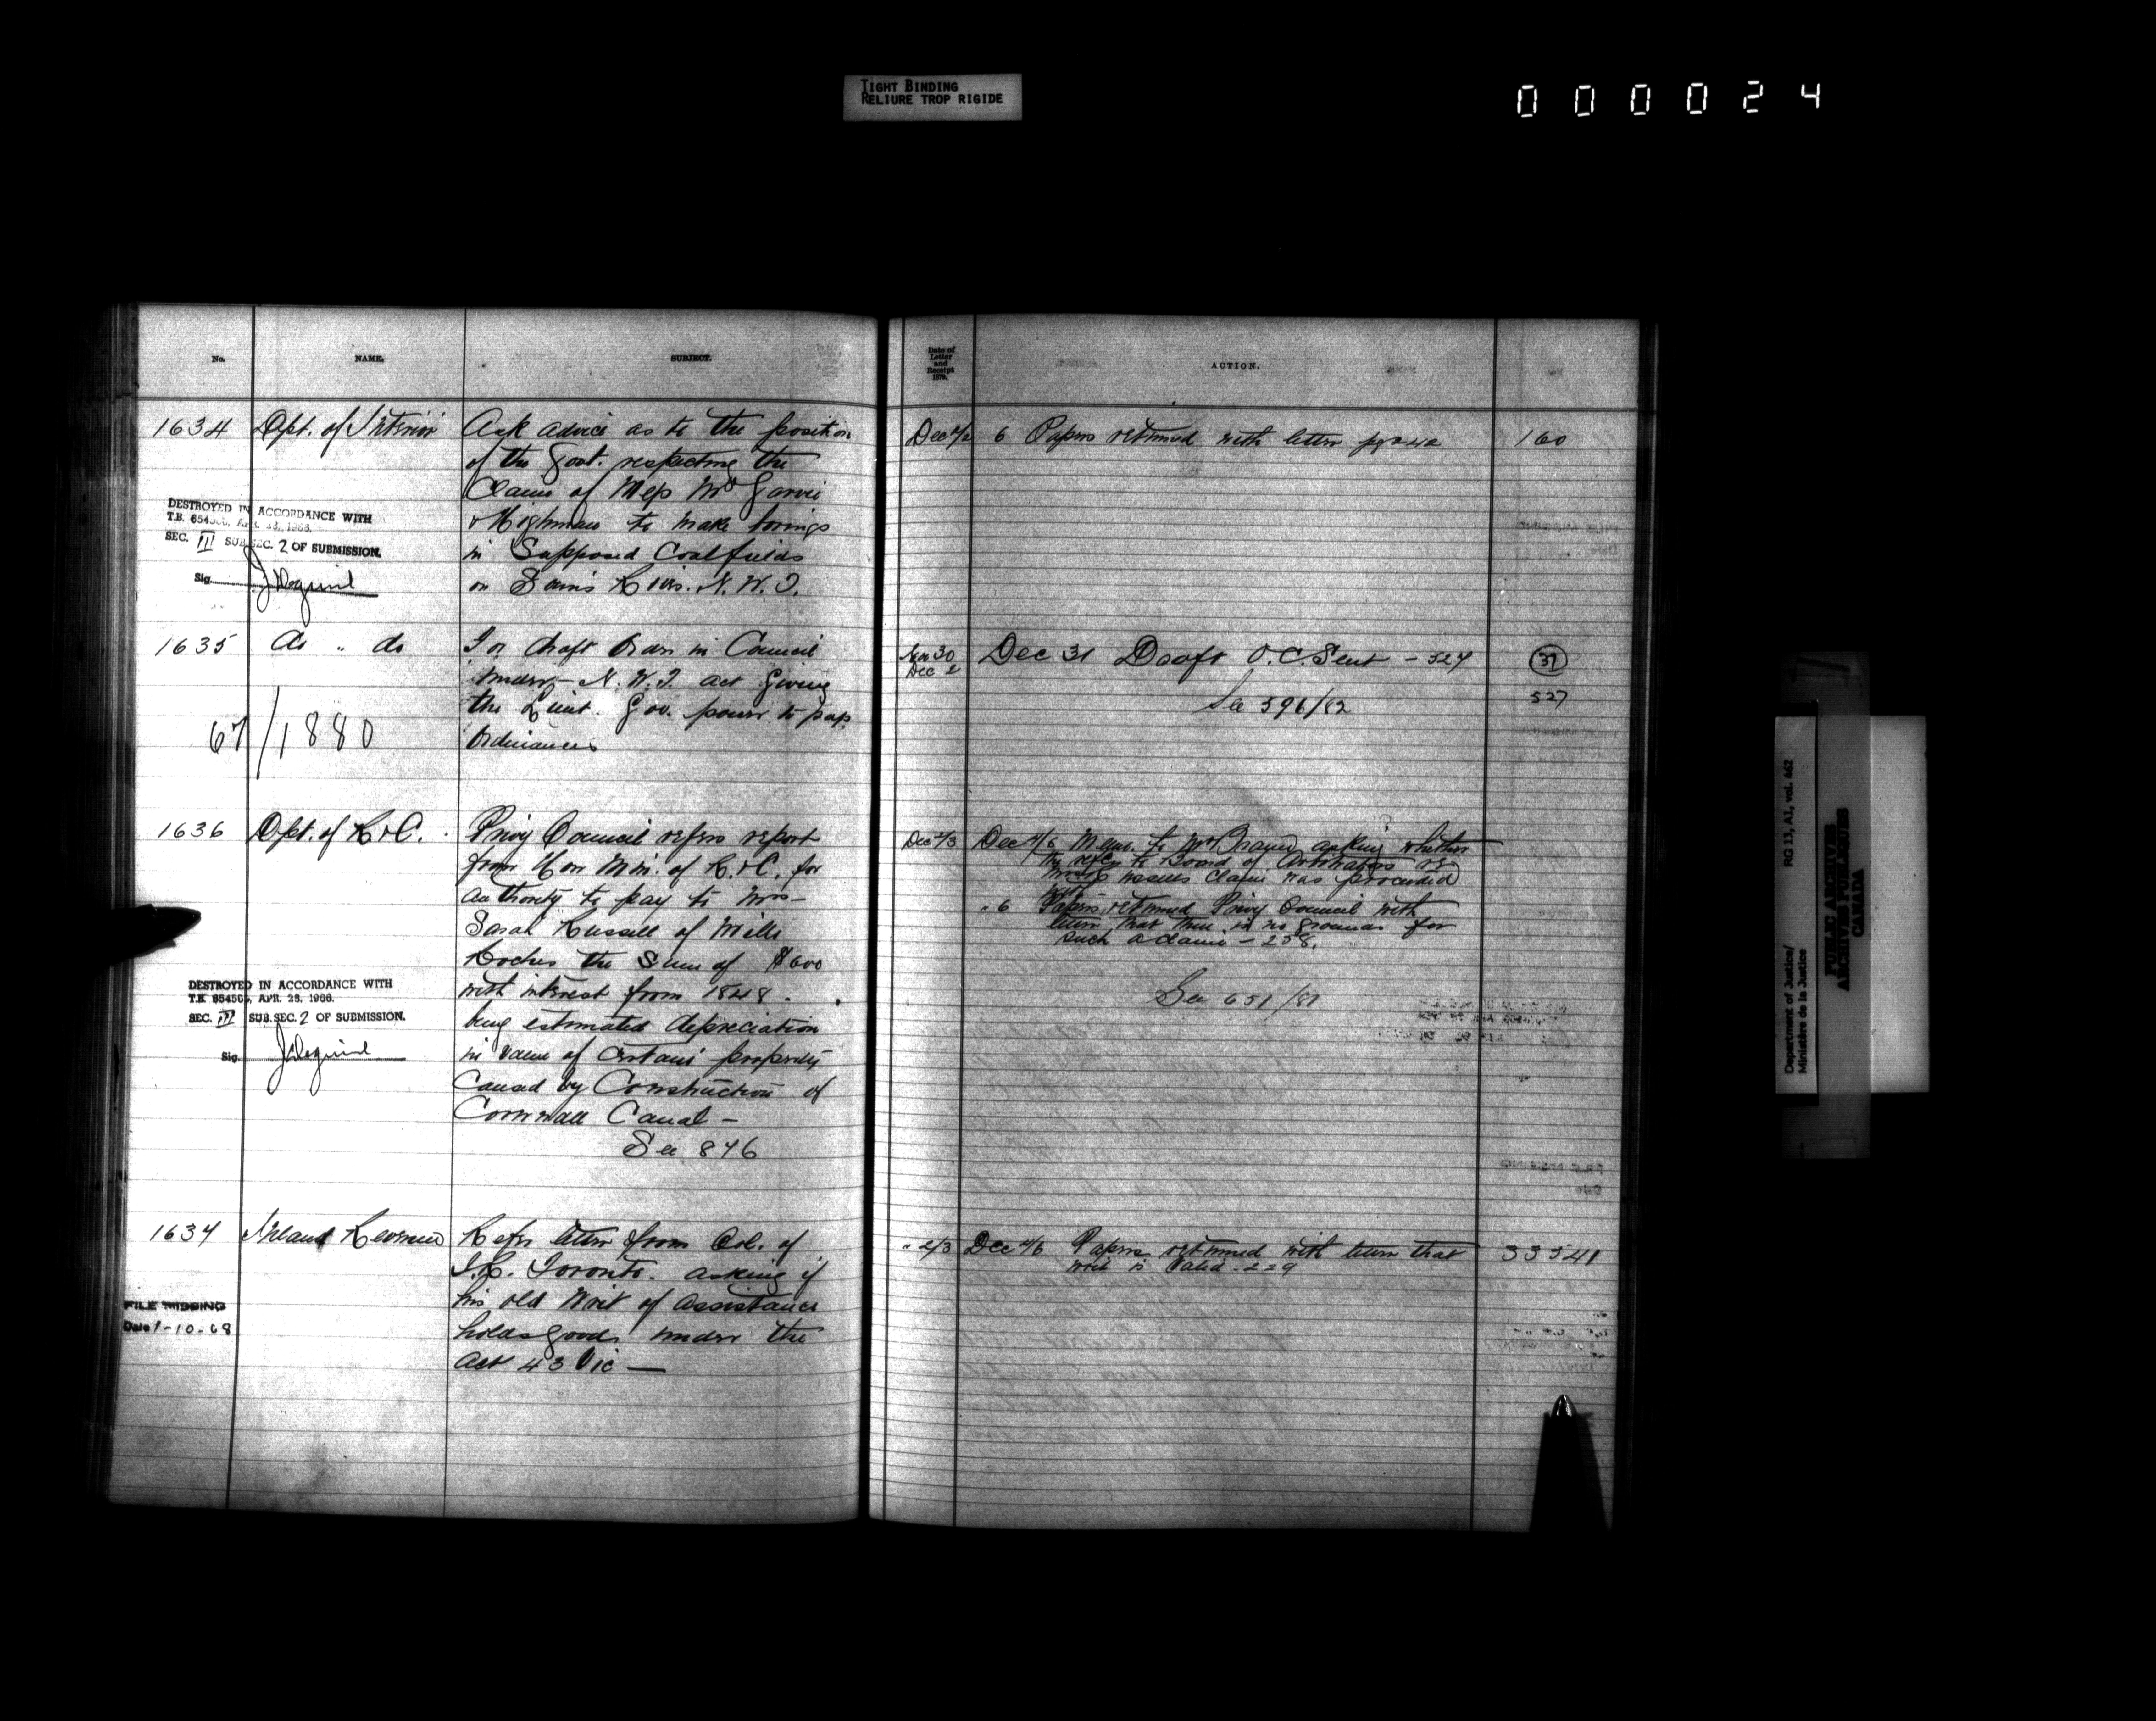 TIGHT BINDING
RELIURE TROP RIGIDE
000024
No.
NAME.
SUBJECT.
1634 Dpt. of Interior
Ask advice as to the position
of the Govt. respecting the
Claims of Mess
to make borings
in Supposed Coal fields
on Souris River. N. W. T.
DESTROYED IN ACCORDANCE WITH
T.B. 654505, APR. 28, 1966.
SEC. III SUB.SEC. 2 OF SUBMISSION.
Sig.
1635 do " do
For draft Order in Council
under N. W. T. act giving
the Lieut. Gov. power to pass
Ordinances
67/1880
1636 Dpt. of R & C.
Privy Council refers report
from Hon Min. of R. & C. for
authority to pay to Mrs
Sarah Russell of Mille
Roches the Sum of $600
with interest from 1848.
being estimated depreciation
in value of Certain property
Caused by Construction of
Cornwall Canal -
See 876
DESTROYED IN ACCORDANCE WITH
T.B. 654505, APR. 28, 1966.
SEC. III SUB.SEC. 2 OF SUBMISSION.
Sig.
1637 Inland Revenue
Refers letter from Col. of
I.R. Toronto. asking if
his old Writ of Assistance
holds good under the
Act 43 Vic —
FILE MISSING
Date 1-10-68
Date of
Letter
and
Receipt
1879.
ACTION.
Dec 6 Papers returned with letter 160
Nov 30
Dec 2
Dec 31 Draft O.C. Sent - 527
37
527
See 596/82
Dec 2/3 Dec 4/6 Memo. to Mr asking whether
the refce to Board of Arbitrators re
Russells Claim was proceeded
with
" 6 Papers returned Privy Council with
letter that there is no grounds for
such a claim - 238.
See 651/81
" 2/3 Dec 4/6 Papers returned with letter that
writ is Valid. 229
33541
Department of Justice/
Ministère de la Justice
RG 13, A1, vol. 462
PUBLIC ARCHIVES
ARCHIVES PUBLIQUES
CANADA